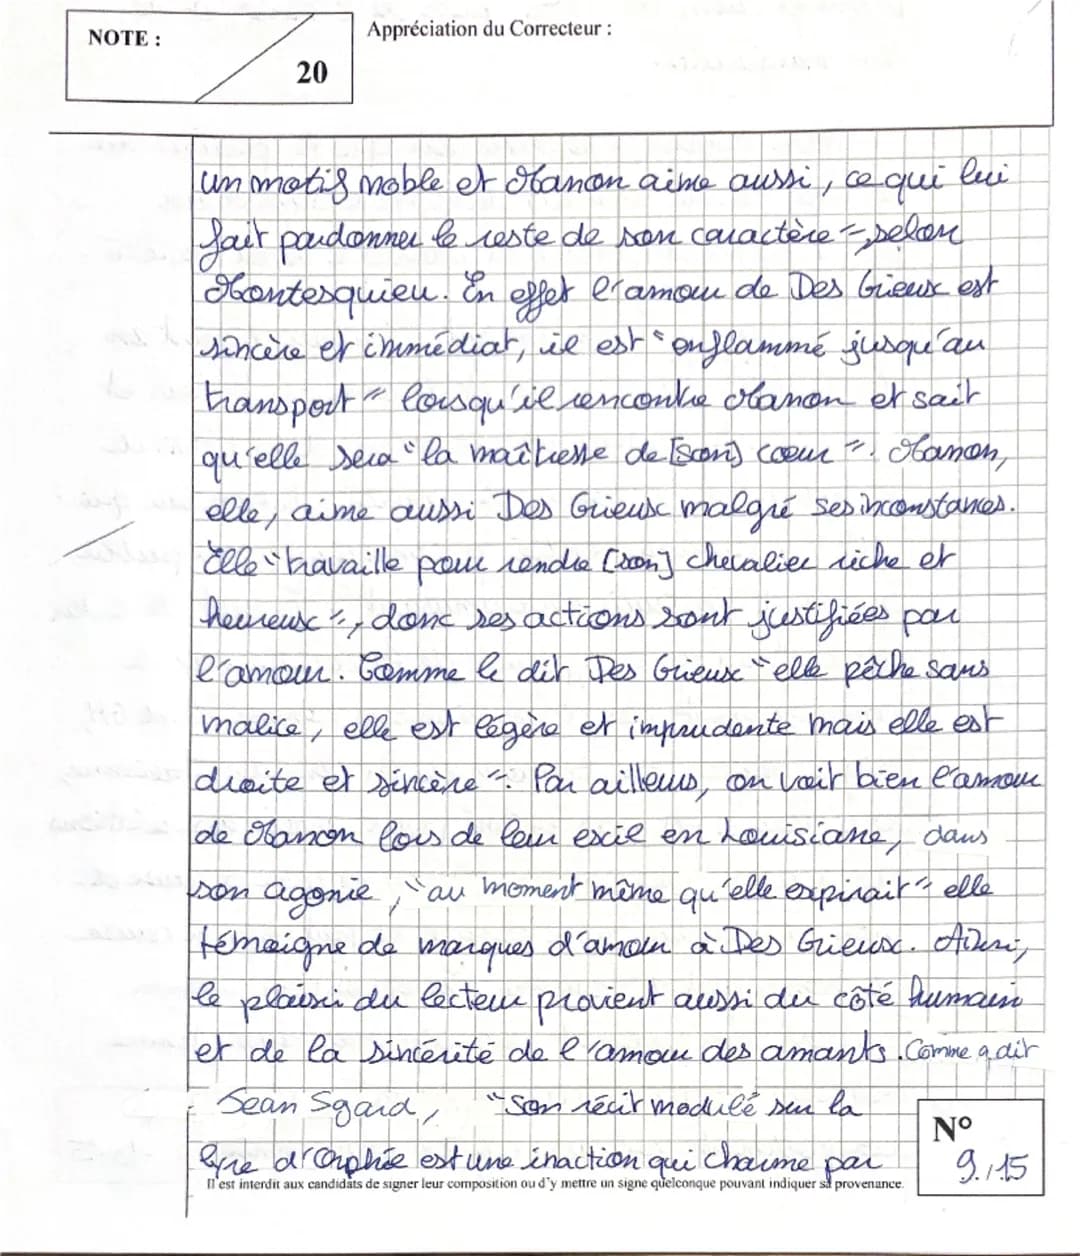 NOTE :
20
Appréciation du Correcteur :
un motif noble et Manon aime aussi, ce qui lui
fait pardonner le reste de son caractère", selon
Montesquieu. En effet l'amour de Des Grieux est
sincère et immédiat, il est "enflammé jusqu'au
transport" lorsqu'il rencontre Manon et sait
qu'elle sera "la maîtresse de [son] cœur". Manon,
elle, aime aussi Des Grieux malgré ses inconstances.
Elle "travaille pour rendre [son] chevalier riche et
heureux", donc ses actions sont justifiées par
l'amour. Comme le dit Des Grieux "elle pêche sans
malice, elle est légère et imprudente mais elle est
droite et sincère". Par ailleurs, on voit bien l'amour
de Manon lors de leur exil en Louisiane, dans
son agonie, "au moment même qu'elle expirait" elle
témoigne de marques d'amour à Des Grieux. Ainsi,
le plaisir du lecteur provient aussi du côté humain
et de la sincérité de l'amour des amants. Comme a dit
Jean Sgard, "Son récit modulé sur la
lyre d'Orphée est une inaction qui charme par
Il est interdit aux candidats de signer leur composition ou d'y mettre un signe quelconque pouvant indiquer sa provenance.
N°
9./15